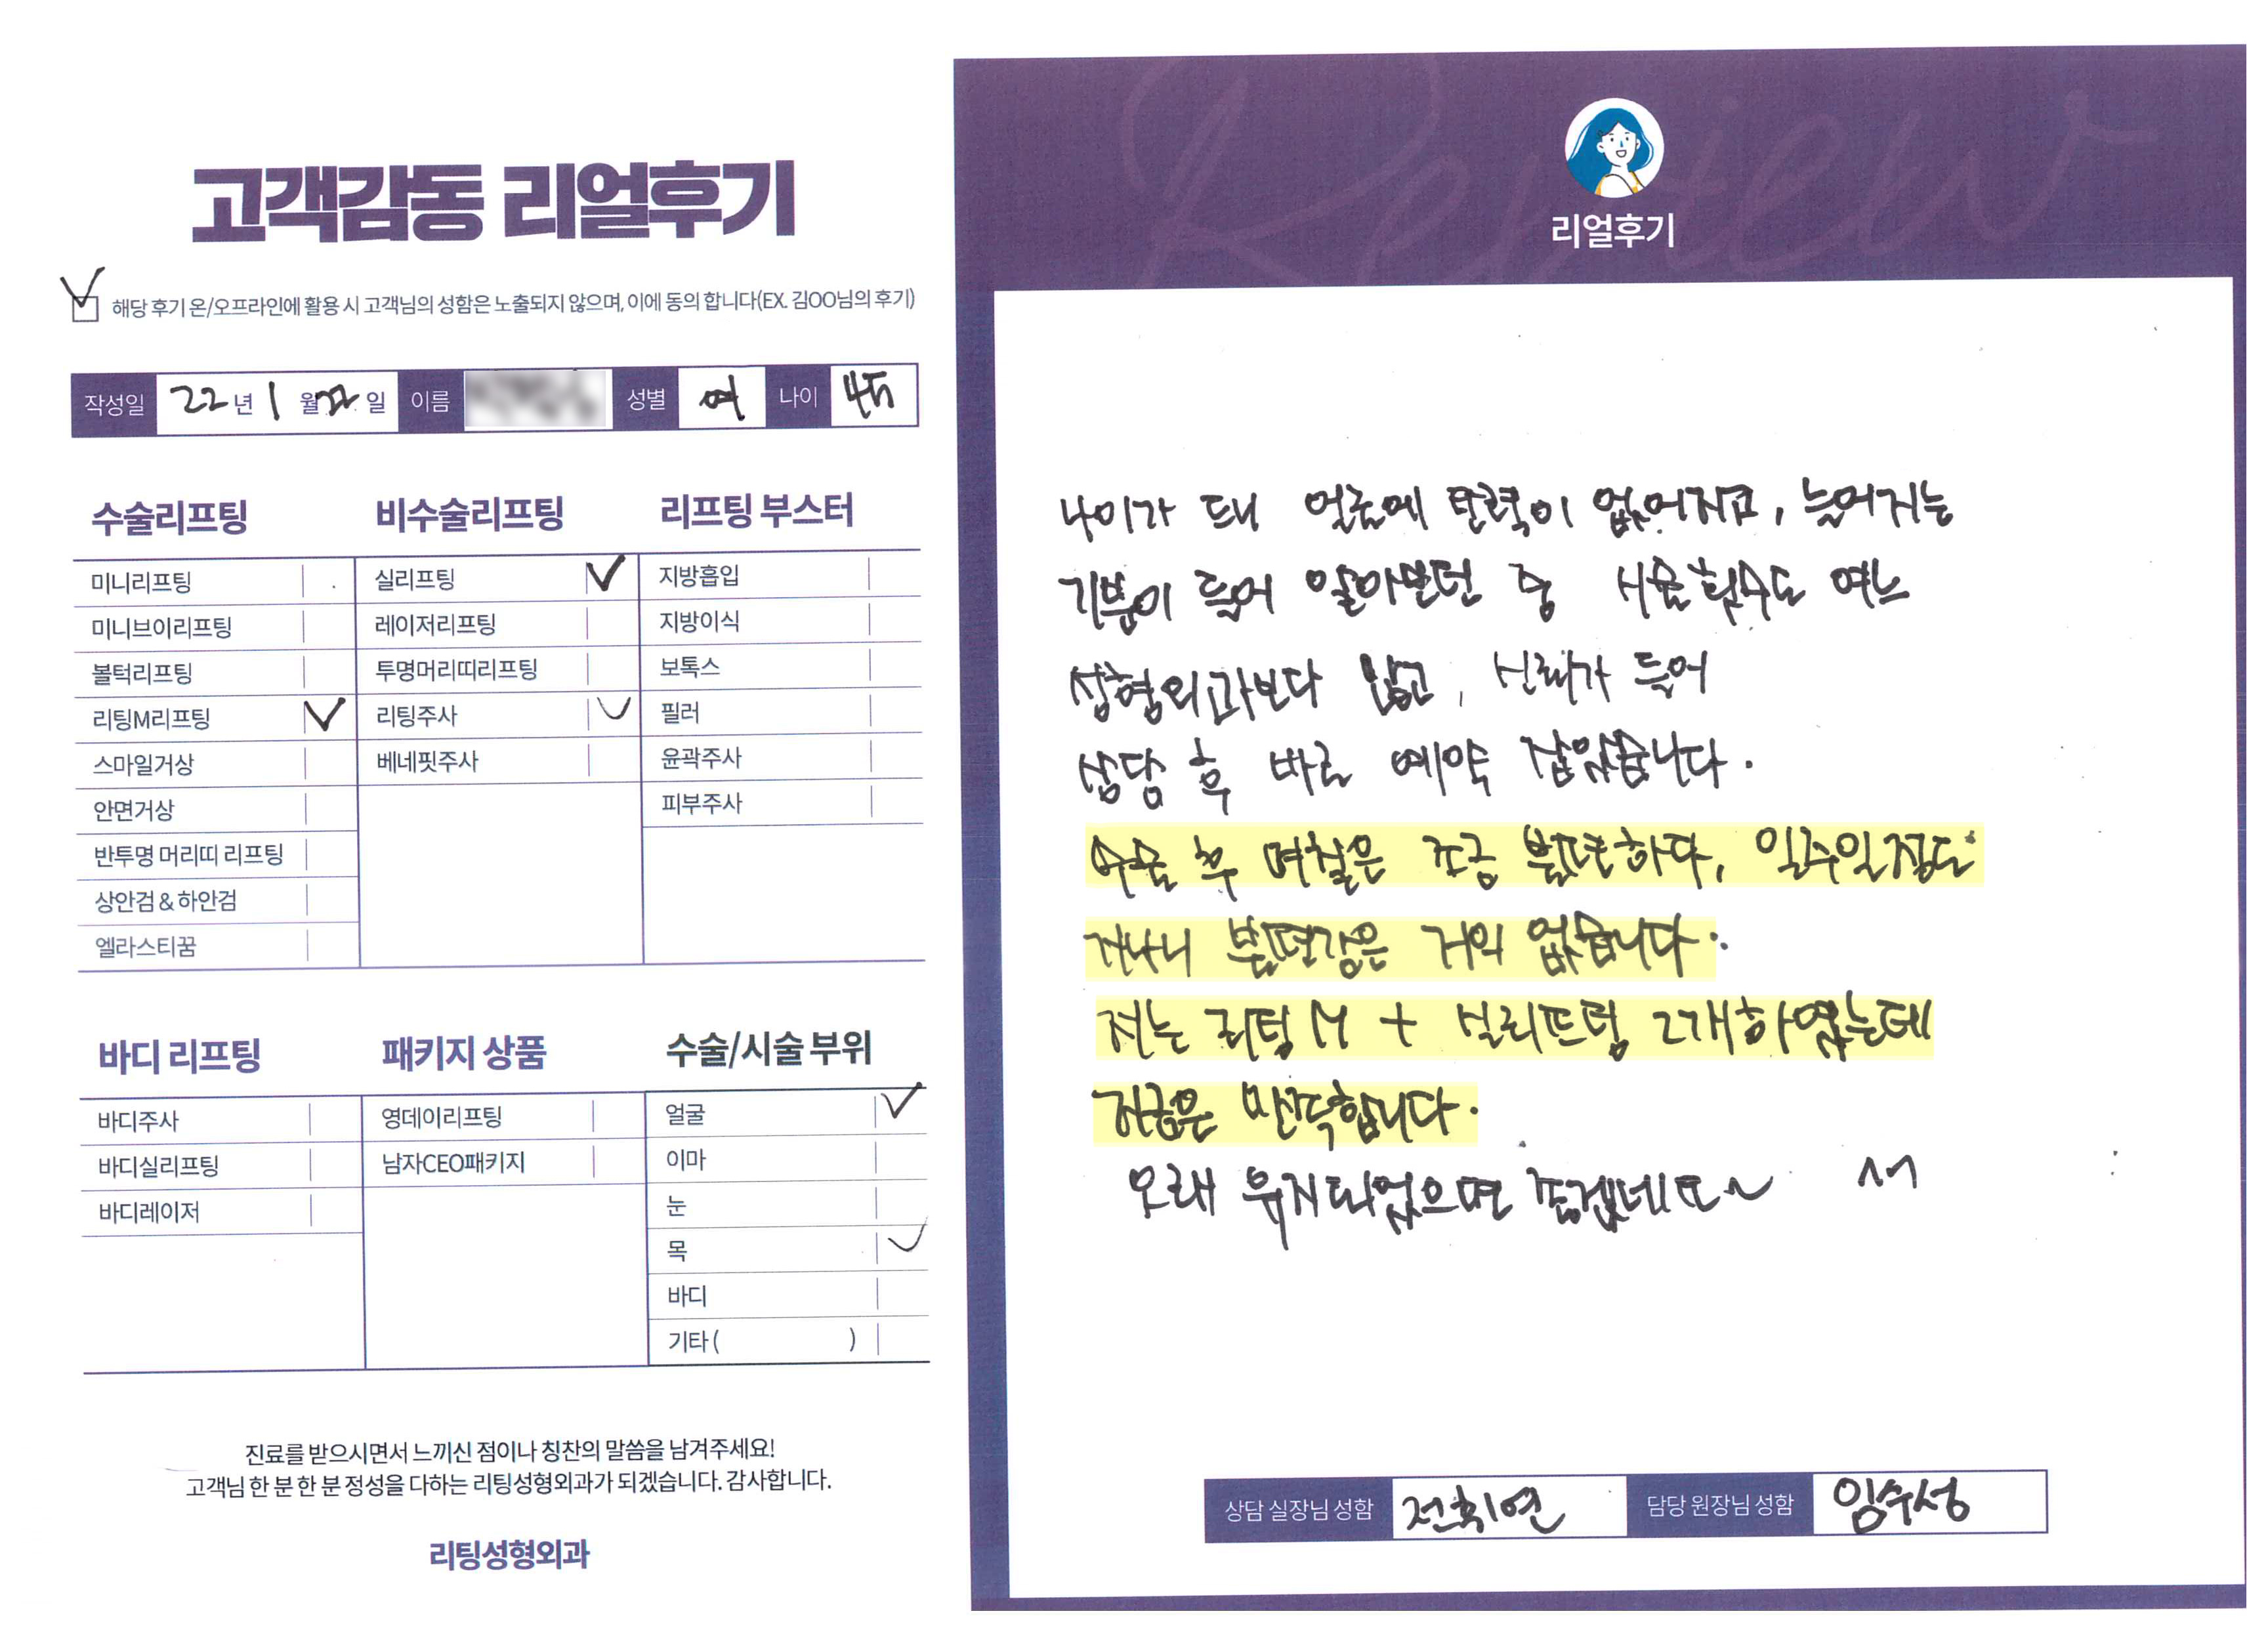 고객감동 리얼후기
해당 후기 온/오프라인에 활용 시 고객님의 성함은 노출되지 않으며, 이에 동의 합니다(EX. 김OO님의 후기)
작성일 22년 1월 22일 이름 성별 여 나이 45
수술리프팅
미니리프팅
미니브이리프팅
볼턱리프팅
리팅M리프팅
스마일거상
안면거상
반투명 머리띠 리프팅
상안검&하안검
엘라스티꿈
비수술리프팅
실리프팅
레이저리프팅
투명머리띠리프팅
리팅주사
베네핏주사
리프팅 부스터
지방흡입
지방이식
보톡스
필러
윤곽주사
피부주사
바디 리프팅
바디주사
바디실리프팅
바디레이저
패키지 상품
영데이리프팅
남자CEO패키지
수술/시술 부위
얼굴
이마
눈
목
바디
기타 ( )
진료를 받으시면서 느끼신 점이나 칭찬의 말씀을 남겨주세요!
고객님 한 분 한 분 정성을 다하는 리팅성형외과가 되겠습니다. 감사합니다.
리팅성형외과
Review
리얼후기
나이가 드니 얼굴에 탄력이 없어지고, 늘어지는
기분이 들어 알아보던 중 시술횟수도 여느
성형외과보다 많고, 신뢰가 들어
상담 후 바로 예약 잡았습니다.
수술 후 며칠은 조금 불편하다, 일주일정도
지나니 불편감은 거의 없습니다.
저는 리팅M + 실리프팅 2개하였는데
지금은 만족합니다.
오래 유지되었으면 좋겠네요~
상담 실장님 성함 전희연 담당 원장님 성함 임수성